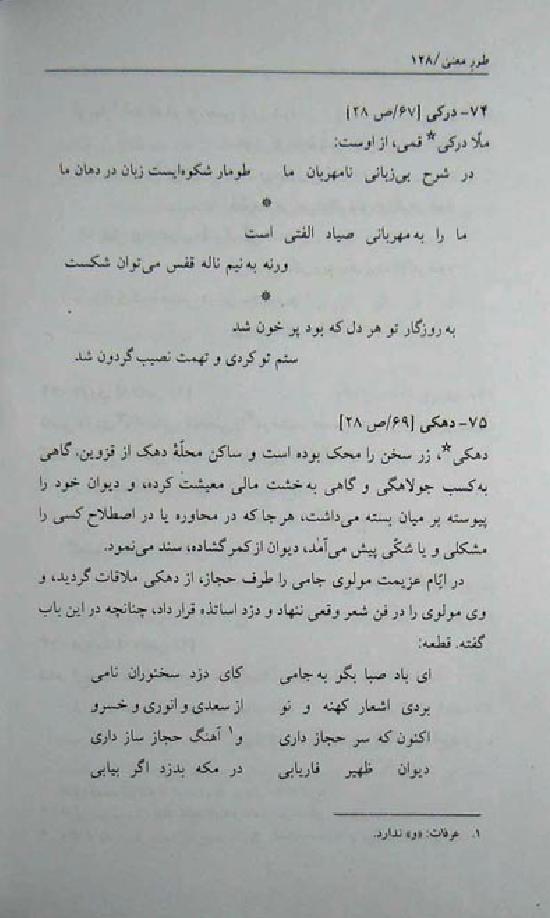 طرز معنی /۱۲۸
۷۴- درکی [۶۷/ص ۲۸]
ملّا درکی* قمی، از اوست:
در شرح بی‌زبانی نامهربان ما طومار شکوه‌ایست زبان در دهان ما
*
ما را به مهربانی صیاد الفتی است
ورنه به نیم ناله قفس می‌توان شکست
*
به روزگار تو هر دل که بود پر خون شد
ستم تو کردی و تهمت نصیب گردون شد
۷۵- دهکی [۶۹/ص ۲۸]
دهکی*، زر سخن را محک بوده است و ساکن محلّهٔ دهک از قزوین. گاهی
به‌کسب جولاهگی و گاهی به‌خشت مالی معیشت کرده، و دیوان خود را
پیوسته بر میان بسته می‌داشت، هرجا که در محاوره یا در اصطلاح کسی را
مشکلی و یا شکّی پیش می‌آمد، دیوان از کمر گشاده، سند می‌نمود.
در ایّام عزیمت مولوی جامی را طرف حجاز، از دهکی ملاقات گردید، و
وی مولوی را در فن شعر وقعی ننهاد و دزد اساتذه قرار داد، چنانچه در این باب
گفته. قطعه:
ای باد صبا بگو به جامی کای دزد سخنوران نامی
بردی اشعار کهنه و نو از سعدی و انوری و خسرو
اکنون که سر حجاز داری و۱ آهنگ حجاز ساز داری
دیوان ظهیر فاریابی در مکه بدزد اگر بیابی
۱. عرفات: «و» ندارد.